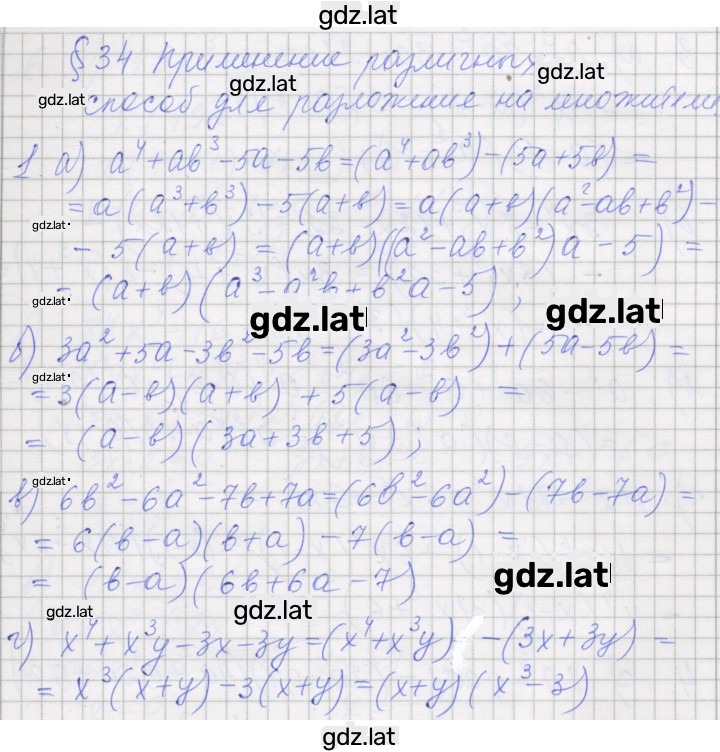 gdz.lat
§ 34 Применение различных
gdz.lat gdz.lat
gdz.lat способ для разложение на множители
1. а) a⁴ + ab³ - 5a - 5b = (a⁴ + ab³) - (5a + 5b) =
= a (a³ + b³) - 5(a + b) = a(a + b)(a² - ab + b²) -
gdz.lat
- 5(a + b) = (a + b)((a² - ab + b²)a - 5) =
= (a + b)(a³ - a²b + b²a - 5);
gdz.lat gdz.lat gdz.lat
б) 3a² + 5a - 3b² - 5b = (3a² - 3b²) + (5a - 5b) =
gdz.lat
= 3(a - b)(a + b) + 5(a - b) =
= (a - b)(3a + 3b + 5);
gdz.lat
в) 6b² - 6a² - 7b + 7a = (6b² - 6a²) - (7b - 7a) =
= 6(b - a)(b + a) - 7(b - a) =
= (b - a)(6b + 6a - 7)
gdz.lat
gdz.lat gdz.lat
г) x⁴ + x³y - 3x - 3y = (x⁴ + x³y) - (3x + 3y) =
= x³(x + y) - 3(x + y) = (x + y)(x³ - 3)
gdz.lat